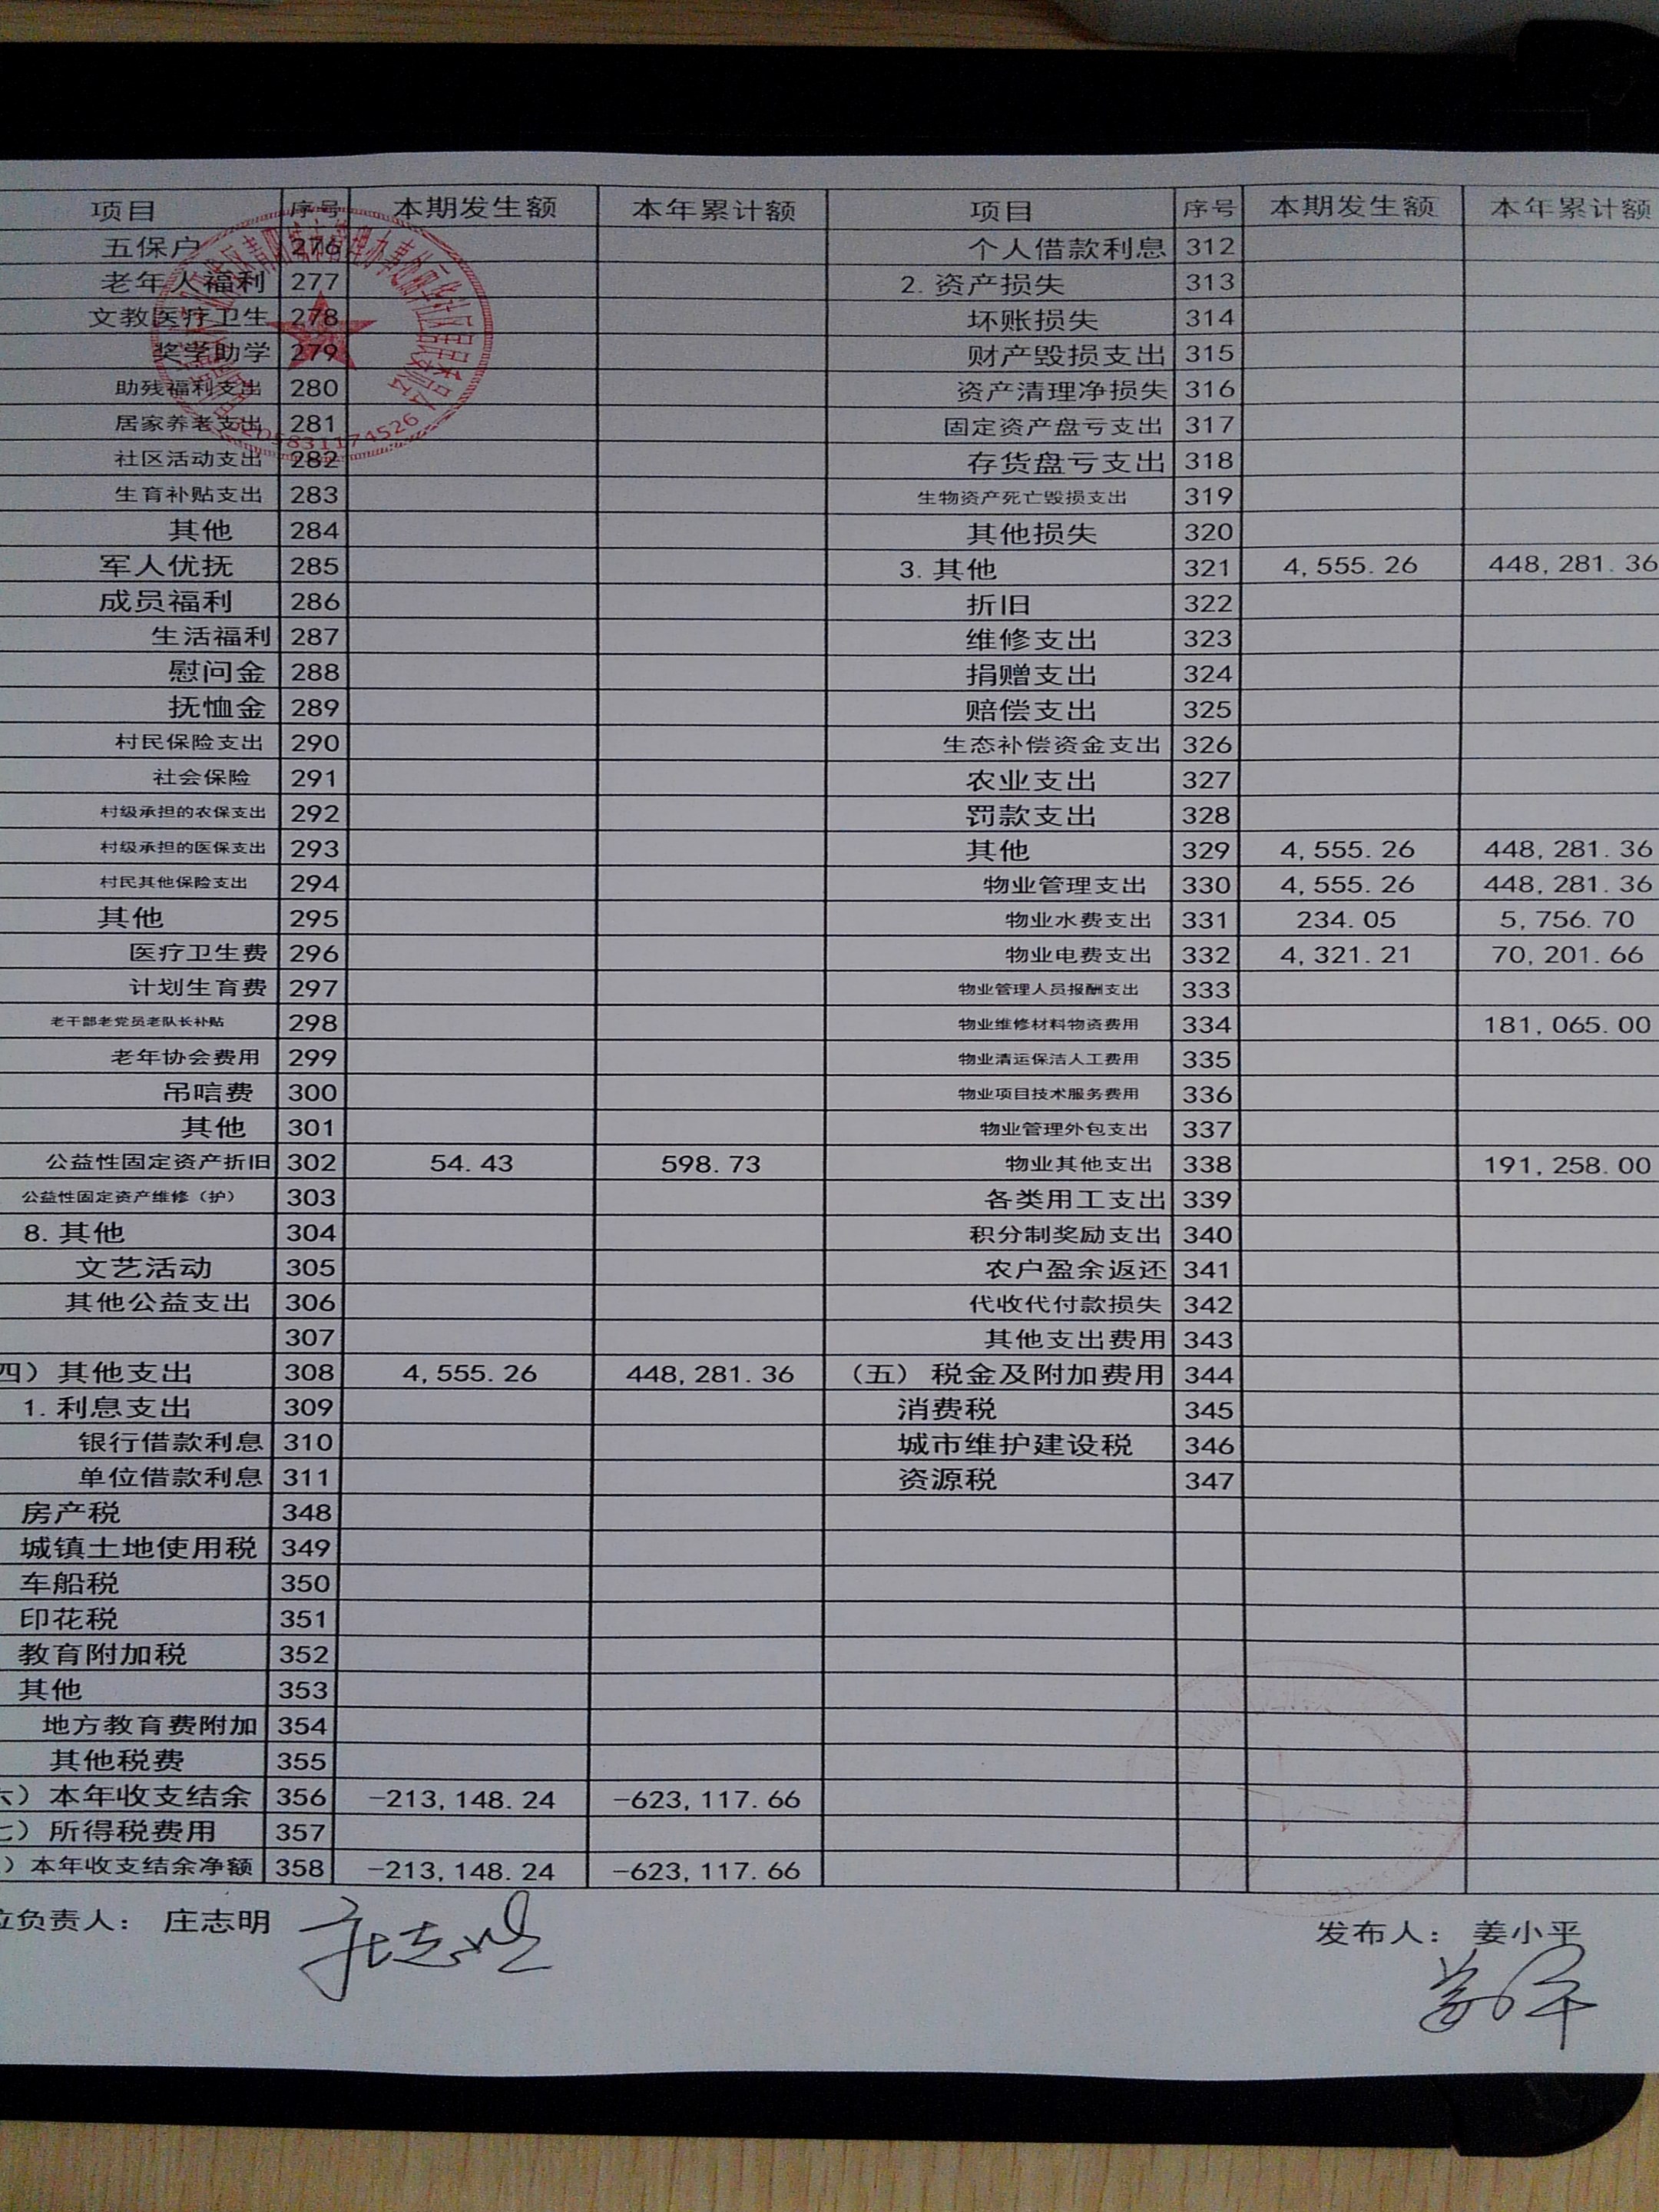 项目 序号 本期发生额 本年累计额 项目 序号 本期发生额 本年累计额
五保户 276 个人借款利息 312
老年人福利 277 2. 资产损失 313
文教医疗卫生 278 坏账损失 314
奖学助学 279 财产毁损支出 315
助残福利支出 280 资产清理净损失 316
居家养老支出 281 固定资产盘亏支出 317
社区活动支出 282 存货盘亏支出 318
生育补贴支出 283 生物资产死亡毁损支出 319
其他 284 其他损失 320
军人优抚 285 3. 其他 321 4,555.26 448,281.36
成员福利 286 折旧 322
生活福利 287 维修支出 323
慰问金 288 捐赠支出 324
抚恤金 289 赔偿支出 325
村民保险支出 290 生态补偿资金支出 326
社会保险 291 农业支出 327
村级承担的农保支出 292 罚款支出 328
村级承担的医保支出 293 其他 329 4,555.26 448,281.36
村民其他保险支出 294 物业管理支出 330 4,555.26 448,281.36
其他 295 物业水费支出 331 234.05 5,756.70
医疗卫生费 296 物业电费支出 332 4,321.21 70,201.66
计划生育费 297 物业管理人员报酬支出 333
老干部老党员老队长补贴 298 物业维修材料物资费用 334 181,065.00
老年协会费用 299 物业清运保洁人工费用 335
吊唁费 300 物业项目技术服务费用 336
其他 301 物业管理外包支出 337
公益性固定资产折旧 302 54.43 598.73 物业其他支出 338 191,258.00
公益性固定资产维修（护） 303 各类用工支出 339
8. 其他 304 积分制奖励支出 340
文艺活动 305 农户盈余返还 341
其他公益支出 306 代收代付款损失 342
307 其他支出费用 343
四）其他支出 308 4,555.26 448,281.36 （五）税金及附加费用 344
1. 利息支出 309 消费税 345
银行借款利息 310 城市维护建设税 346
单位借款利息 311 资源税 347
房产税 348
城镇土地使用税 349
车船税 350
印花税 351
教育附加税 352
其他 353
地方教育费附加 354
其他税费 355
六）本年收支结余 356 -213,148.24 -623,117.66
七）所得税费用 357
）本年收支结余净额 358 -213,148.24 -623,117.66
位负责人： 庄志明 庄志明 发布人： 姜小平
姜小平
3205831174526